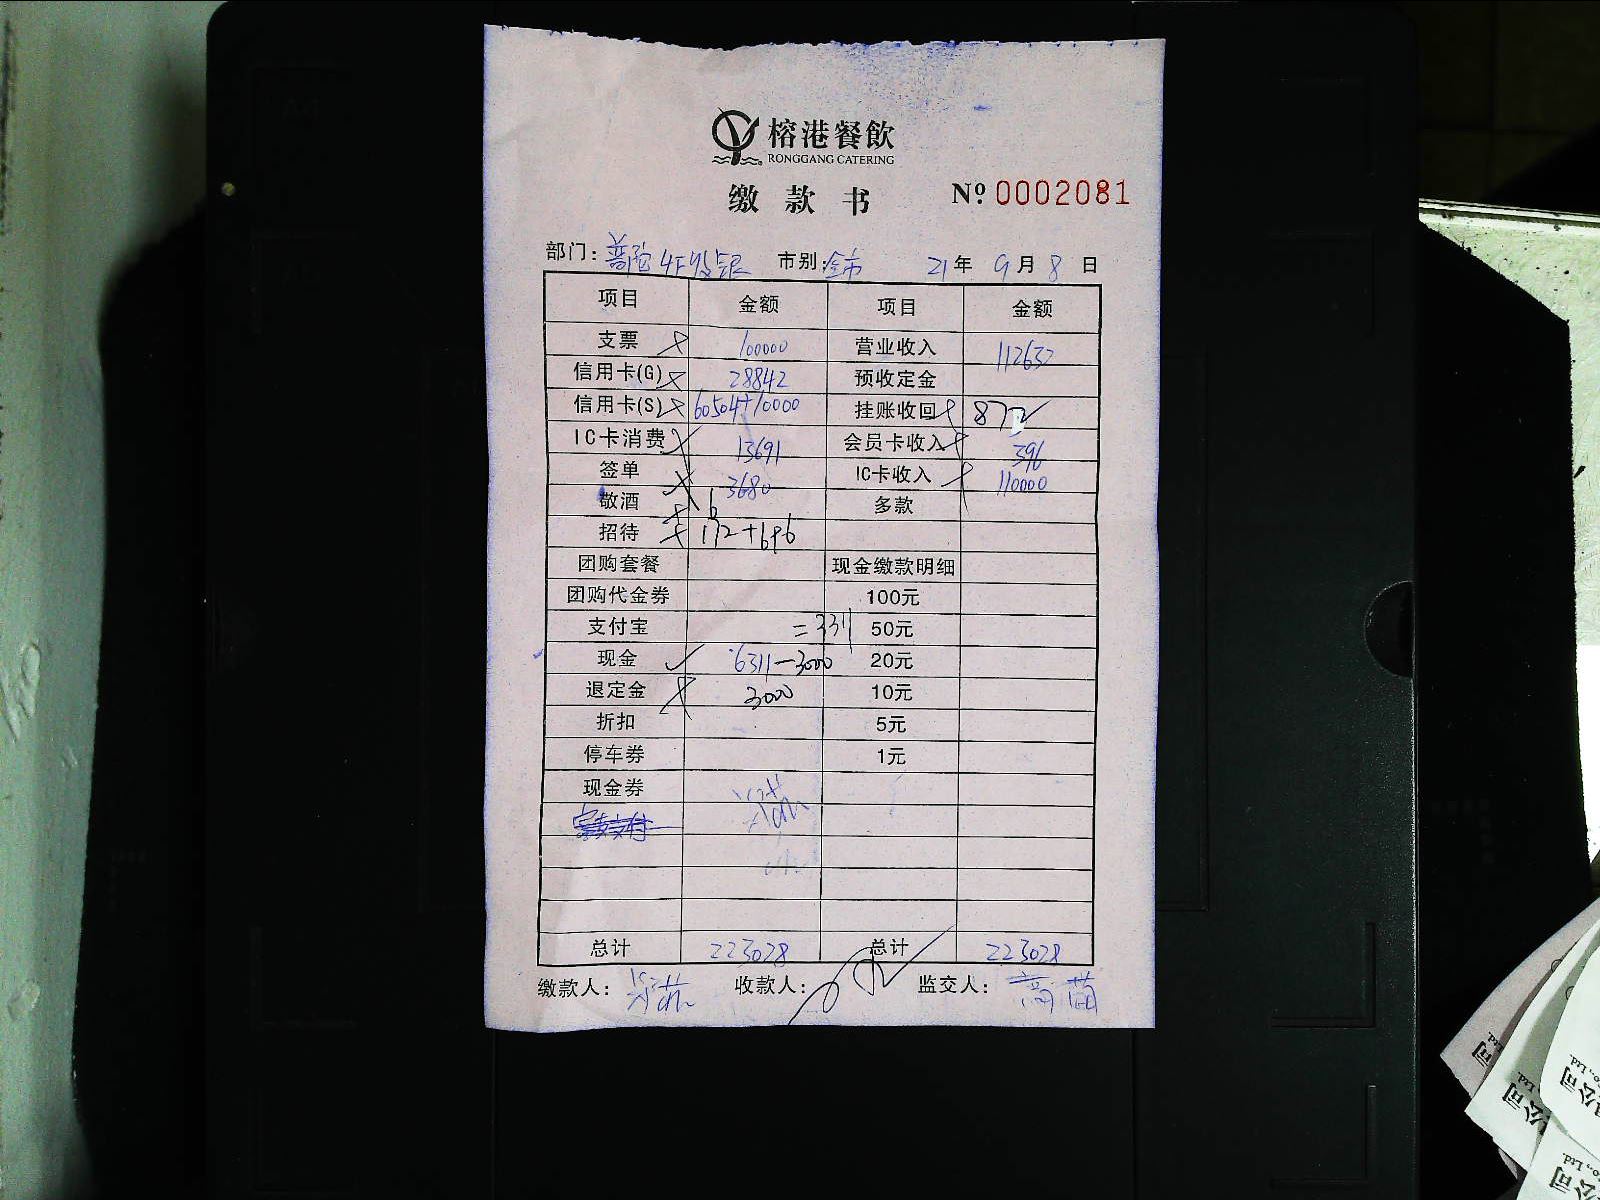 榕港餐飲
RONGGANG CATERING
缴款书 Nº 0002081
部门: 普陀4F收银 市别: 全市 21年9月8日
项目 金额 项目 金额
支票 100000 营业收入 112632
信用卡(G) 28842 预收定金
信用卡(S) 60504+10000 挂账收回
IC卡消费 13691 会员卡收入 396
签单 3680 IC卡收入 110000
敬酒 多款
招待 172+696
团购套餐 现金缴款明细
团购代金券 100元
支付宝 =3311 50元
现金 6311-3000 20元
退定金 3000 10元
折扣 5元
停车券 1元
现金券
总计 223028 总计 223028
缴款人: 收款人: 监交人:
公司
Co., Ltd.
公司
Co., Ltd.
公司
Co., Ltd.